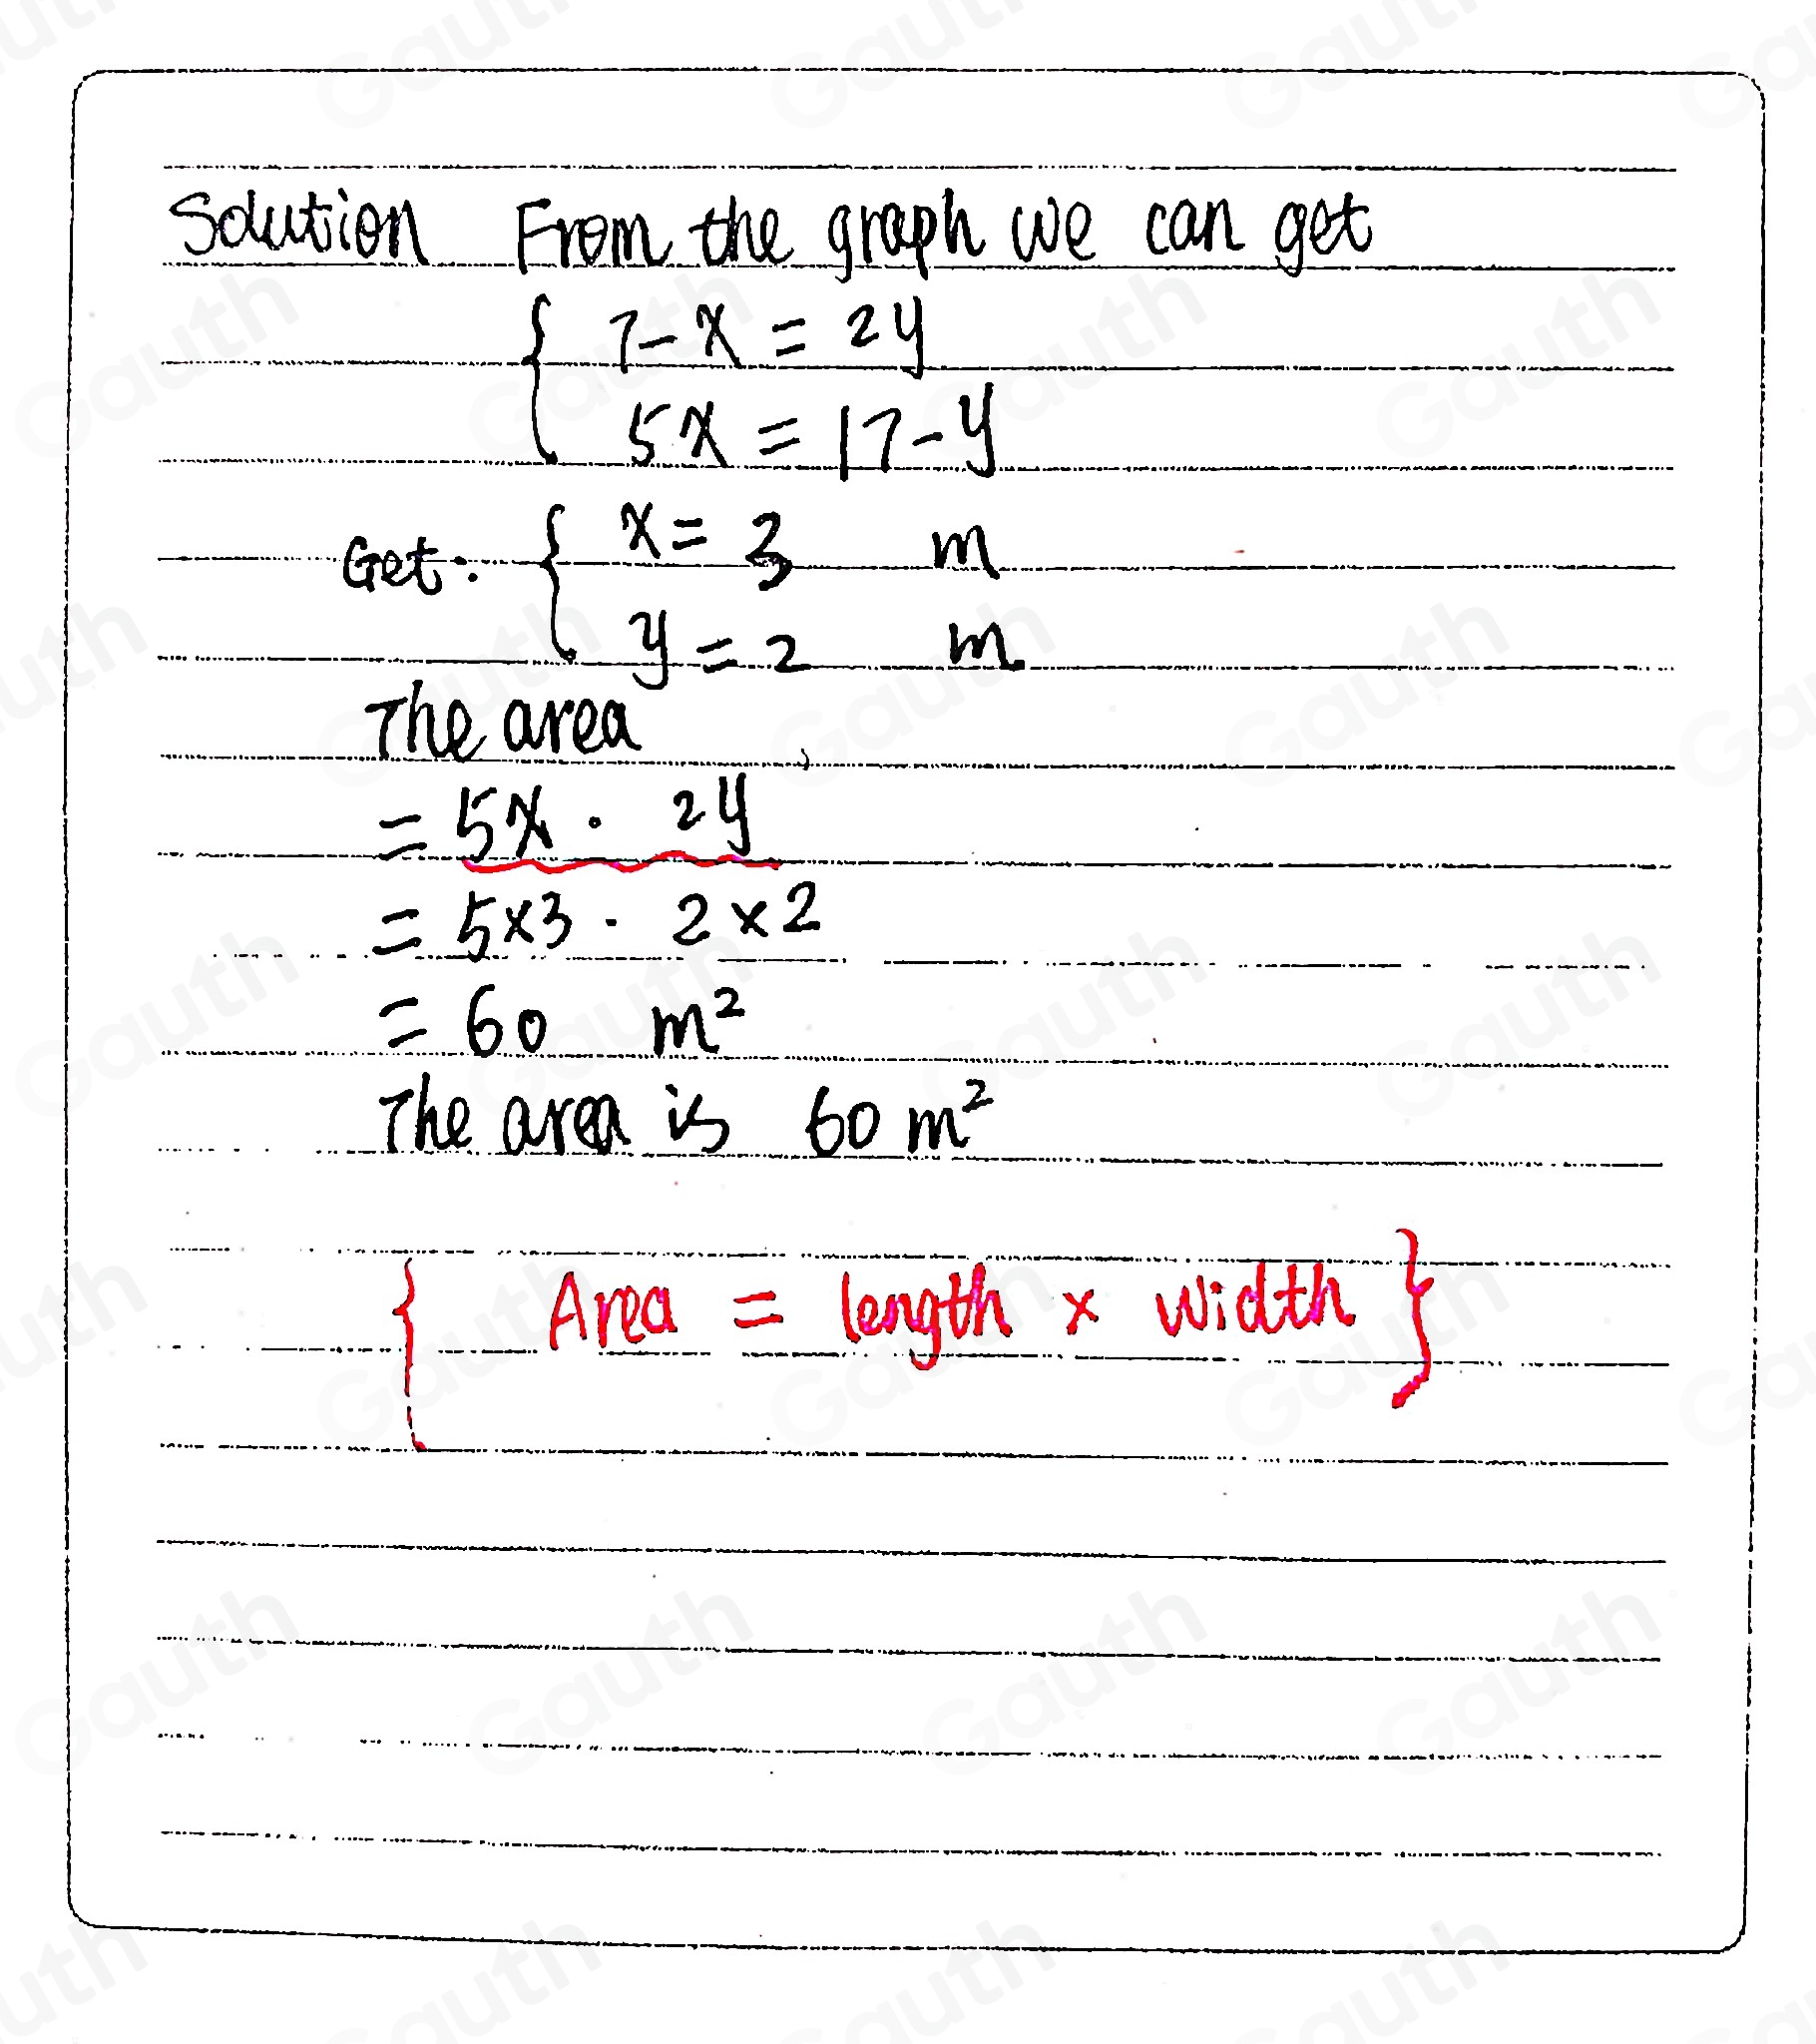 Solution From the graph we can get
{ 7-x = 2y
5x = 17-y
Get: { x = 3 m
y = 2 m
The area
= 5x · 2y
= 5×3 · 2×2
= 60 m²
The area is 60 m²
{ Area = length × width }
Gauth